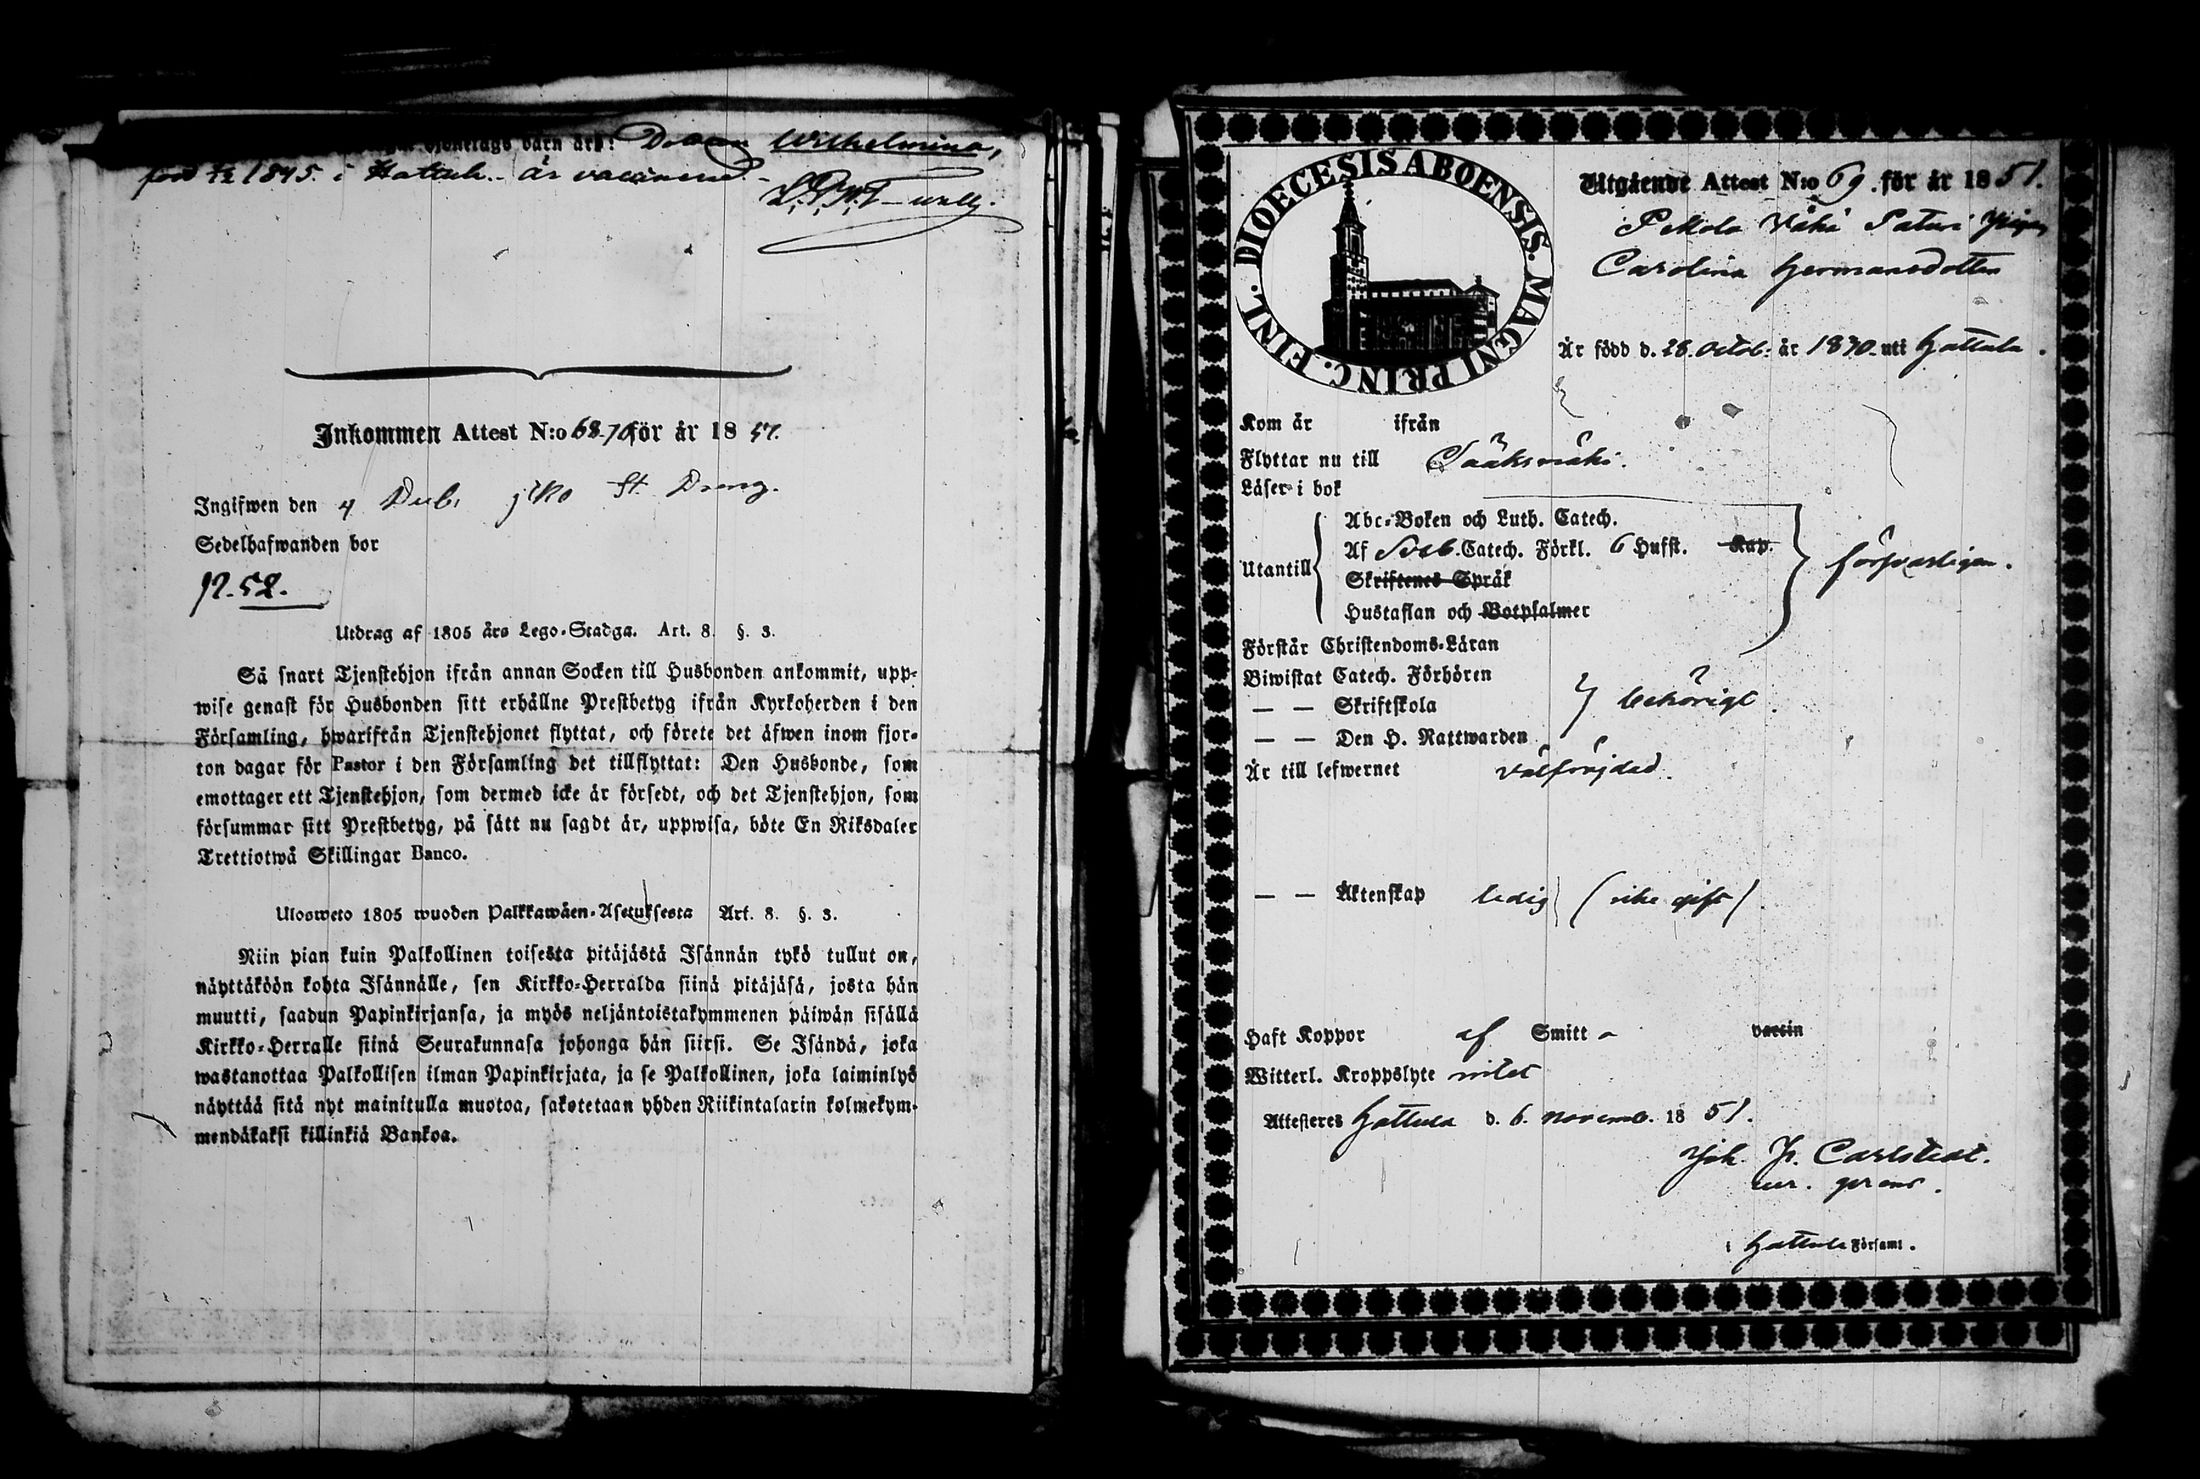 barn äro: Dottren Wilhelmina,
född 1/12 1845. i Hattula. är vaccinerad.
Inkommen Attest N:o 68-70 för år 1851.
Ingifwen den 4 Deb. St. Dreng.
Sedelhafwanden bor
P. 52.
Utdrag af 1805 års Lego-Stadga. Art. 8. §. 3.
Så snart Tjenstehjon ifrån annan Socken till Husbonden ankommit, upp-
wise genast för Husbonden sitt erhållne Prestbetyg ifrån Kyrkoherden i den
Församling, hwarifrån Tjenstehjonet flyttat, och förete det äfwen inom fjor-
ton dagar för Pastor i den Församling det tillflyttat: Den Husbonde, som
emottager ett Tjenstehjon, som dermed icke är försedt, och det Tjenstehjon, som
försummar sitt Prestbetyg, på sätt nu sagdt är, uppwisa, böte En Riksdaler
Trettiotwå Skillingar Banco.
Ulosweto 1805 wuoden Palkkawäen-Asetuksesta Art. 8. §. 3.
Niin pian kuin Palkollinen toisesta pitäjästä Isännän tykö tullut on,
näyttäköön kohta Isännälle, sen Kirkko-Herralda siinä pitäjäsä, josta hän
muutti, saadun Papinkirjansa, ja myös neljäntoistakymmenen päiwän sisällä
Kirkko-Herralle siinä Seurakunnasa johonga hän siirsi. Se Isändä, joka
wastanottaa Palkollisen ilman Papinkirjata, ja se Palkollinen, joka laiminlyö
näyttää sitä nyt mainitulla muotoa, sakotetaan yhden Riikintalarin kolmekym-
mendäkaksi killinkiä Bankoa.
DIOECESIS ABOENSIS. MAGNI PRINC. FINL.
Utgående Attest N:o 69. för år 1851.
Pekola Wähä Saturi Pigan
Carolina Hermansdotter
Är född d. 28. Octob: år 1830. uti Hattula.
Kom år ifrån
Flyttar nu till Sääksmäki.
Läser i bok
Abc-Boken och Luth. Catech.
Utantill Af Sveb. Catech. Förkl. 6 Hufst. Kap. försvarligen.
Skriftenes Språk
Hustaflan och Botpsalmer
Förstår Christendoms-Läran
Biwistat Catech. Förhören
— — Skriftskola behörigt.
— — Den H. Nattwarden
Är till lefwernet välfräjdad.
— — Äktenskap ledig (icke gift)
Haft Koppor af Smitt – vaccin
Witterl. Kroppslyte intet
Attesteres Hattula d. 6. Novemb. 1851.
Joh. Fr. Carlstedt.
cur. gerens.
i Hattula Församl.